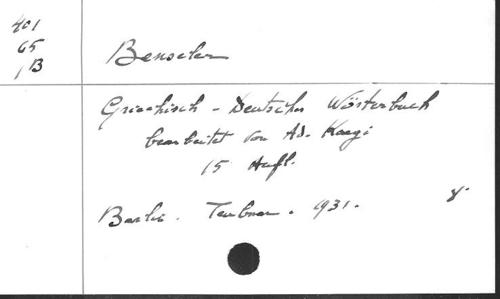 401
65
/B
Benseler
Griechisch - Deutsches Wörterbuch
bearbeitet von Ad. Kaegi
15 Aufl.
Berlin. Teubner. 1931.
8°